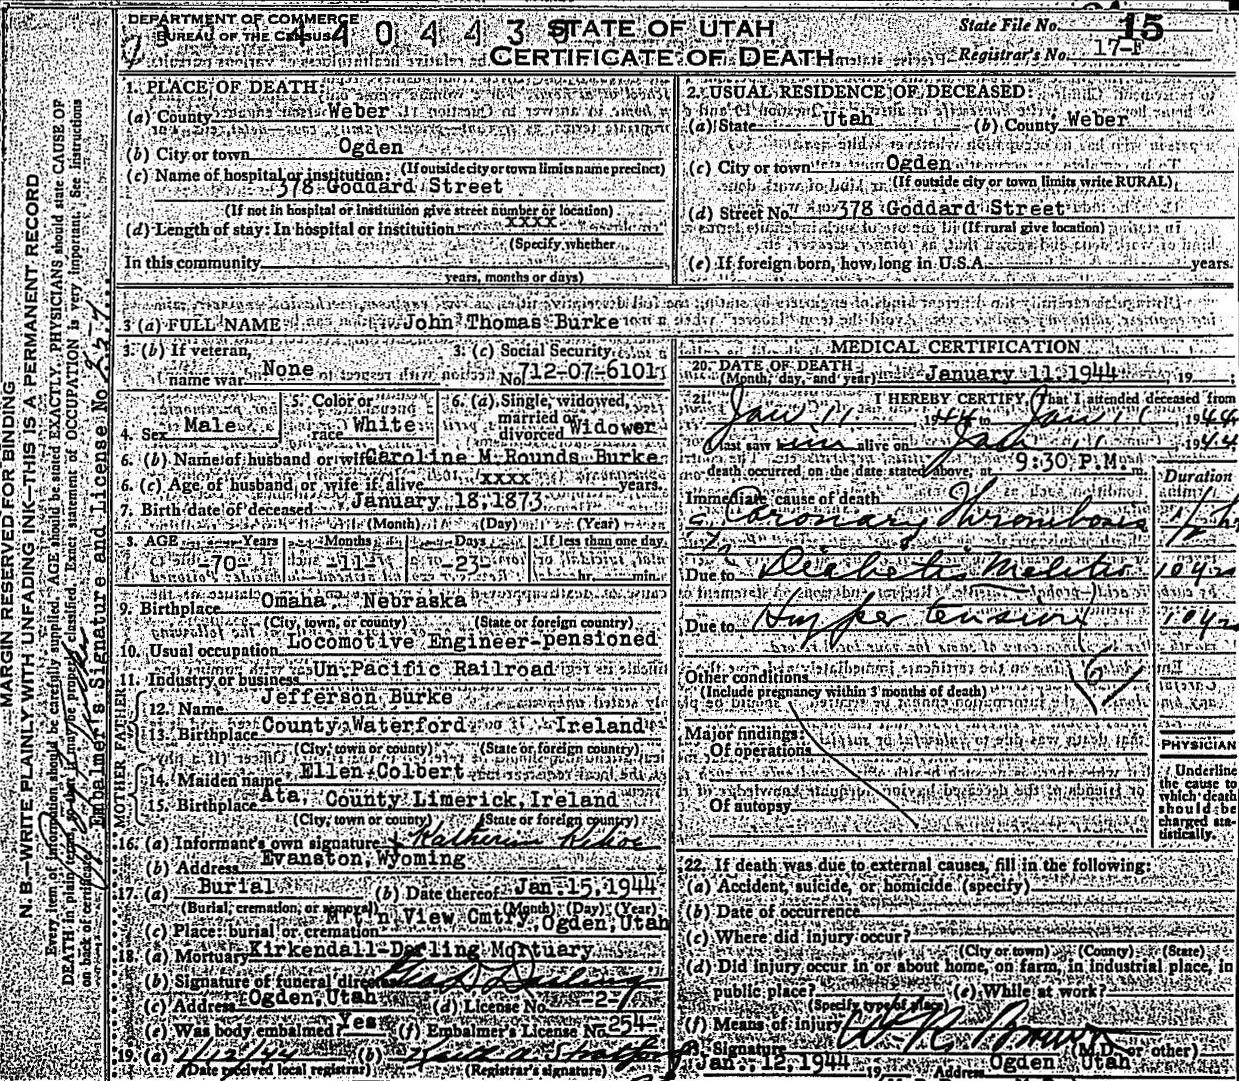 DEPARTMENT OF COMMERCE
BUREAU OF THE CENSUS
STATE OF UTAH
CERTIFICATE OF DEATH
State File No. 15
Registrar's No. 17-F
MARGIN RESERVED FOR BINDING
N.B.—WRITE PLAINLY WITH UNFADING INK—THIS IS A PERMANENT RECORD
Every item of information should be carefully supplied. AGE should be stated EXACTLY. PHYSICIANS should state CAUSE OF
DEATH in plain terms, so that it may be properly classified. Exact statement of OCCUPATION is very important. See instructions
on back of certificate.
Embalmer's Signature and License No.
1. PLACE OF DEATH:
(a) County Weber
(b) City or town Ogden
(If outside city or town limits name precinct)
(c) Name of hospital or institution:
378 Goddard Street
(If not in hospital or institution give street number or location)
(d) Length of stay: In hospital or institution xxxx
(Specify whether
In this community
years, months or days)
2. USUAL RESIDENCE OF DECEASED:
(a) State Utah (b) County Weber
(c) City or town Ogden
(If outside city or town limits write RURAL)
(d) Street No. 378 Goddard Street
(If rural give location)
(e) If foreign born, how long in U.S.A. years.
3 (a) FULL NAME John Thomas Burke
3. (b) If veteran, name war None
3. (c) Social Security No. 712-07-6101
4. Sex Male
5. Color or race White
6. (a) Single, widowed, married or divorced Widower
6. (b) Name of husband or wife Caroline M Rounds Burke
6. (c) Age of husband or wife if alive xxxx years.
7. Birth date of deceased January 18, 1873
(Month) (Day) (Year)
8. AGE Years Months Days If less than one day
-70- -11- -23- hr. min.
9. Birthplace Omaha, Nebraska
(City, town, or county) (State or foreign country)
10. Usual occupation Locomotive Engineer-pensioned
11. Industry or business Un Pacific Railroad
FATHER
12. Name Jefferson Burke
13. Birthplace County Waterford Ireland
(City, town or county) (State or foreign country)
MOTHER
14. Maiden name Ellen Colbert
15. Birthplace Ata, County Limerick, Ireland
(City, town or county) (State or foreign country)
16. (a) Informant's own signature Katherine Kehoe
(b) Address Evanston, Wyoming
17 (a) Burial (b) Date thereof Jan 15, 1944
(Burial, cremation, or removal) (Month) (Day) (Year)
(c) Place: burial or cremation M't'n View Cmtry Ogden, Utah
18. (a) Mortuary Kirkendall-Darling Mortuary
(b) Signature of funeral director
(c) Address Ogden, Utah (d) License No.
(e) Was body embalmed? Yes (f) Embalmer's License No. 254-
19. (a) 1/12/44 (b)
(Date received local registrar) (Registrar's signature)
MEDICAL CERTIFICATION
20. DATE OF DEATH
(Month, day, and year) January 11, 1944, 19 ;
21. I HEREBY CERTIFY, That I attended deceased from
Jan 11 1944 to Jan 11 1944
I last saw him alive on Jan 11 1944
death occurred on the date stated above, at 9:30 P.M. m.
Duration
Immediate cause of death
Coronary Thrombosis 1/2 hr
Due to Diabetis Melitis 10 yrs
Due to Hypertension 10 yrs
Other conditions
(Include pregnancy within 3 months of death)
Major findings:
Of operations
Of autopsy
PHYSICIAN
Underline
the cause to
which death
should be
charged sta-
tistically.
22. If death was due to external causes, fill in the following:
(a) Accident, suicide, or homicide (specify)
(b) Date of occurrence
(c) Where did injury occur?
(City or town) (County) (State)
(d) Did injury occur in or about home, on farm, in industrial place, in
public place? (e) While at work?
(Specify type of place)
(f) Means of injury
Signature (M.D. or other)
Jan. 12, 1944 19 Address Ogden, Utah